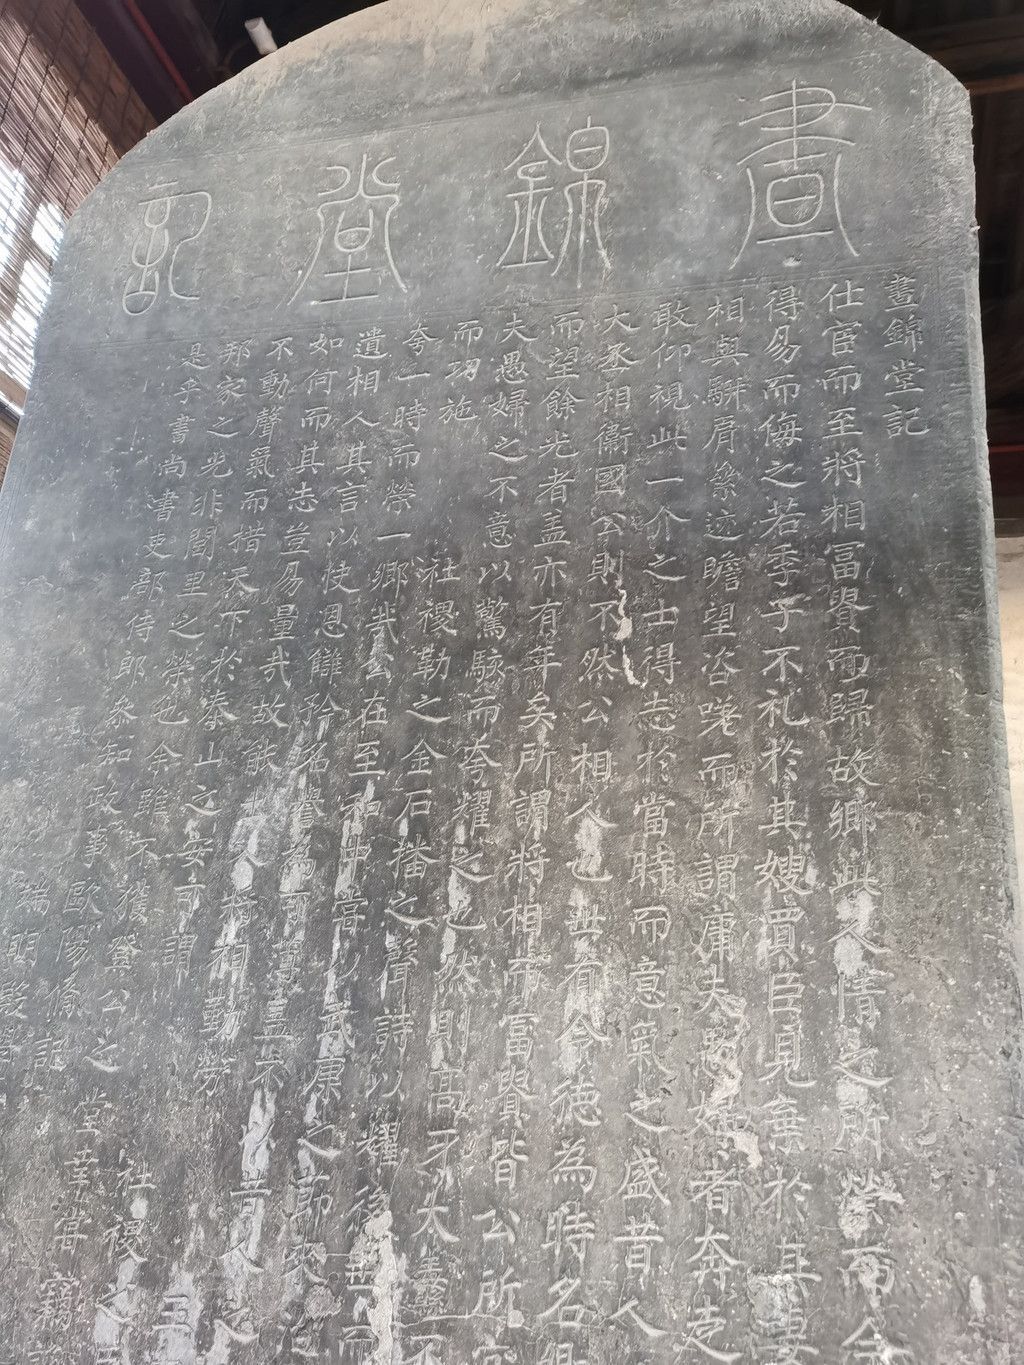 晝錦堂記
晝錦堂記
仕宦而至將相冨貴而歸故鄉此人情之所榮而今
得易而侮之若季子不礼於其嫂買臣見棄於其妻
相與駢肩絫迹瞻望咨嗟而所謂庸夫愚婦者奔走
敢仰視此一介之士得志於當時而意氣之盛昔人
大丞相衞國公則不然公相人也世有令德為時名
而望餘光者盖亦有年矣所謂將相而冨貴皆公所
夫愚婦之不意以驚駭而夸耀之也然則髙牙大纛不
而功施社稷勒之金石播之聲詩以耀後世而
夸一時而榮一鄉哉公在至和中嘗以武康之節來治
遺相人其言以快恩讎矜名譽為可
如何而其志豈易量哉故能
不動聲氣而措天下於泰山之安可謂社稷之
邦家之光非閭里之榮也余雖不獲登公之堂幸嘗竊
是乎書尚書吏部侍郎叅知政事歐陽脩記
端明殿